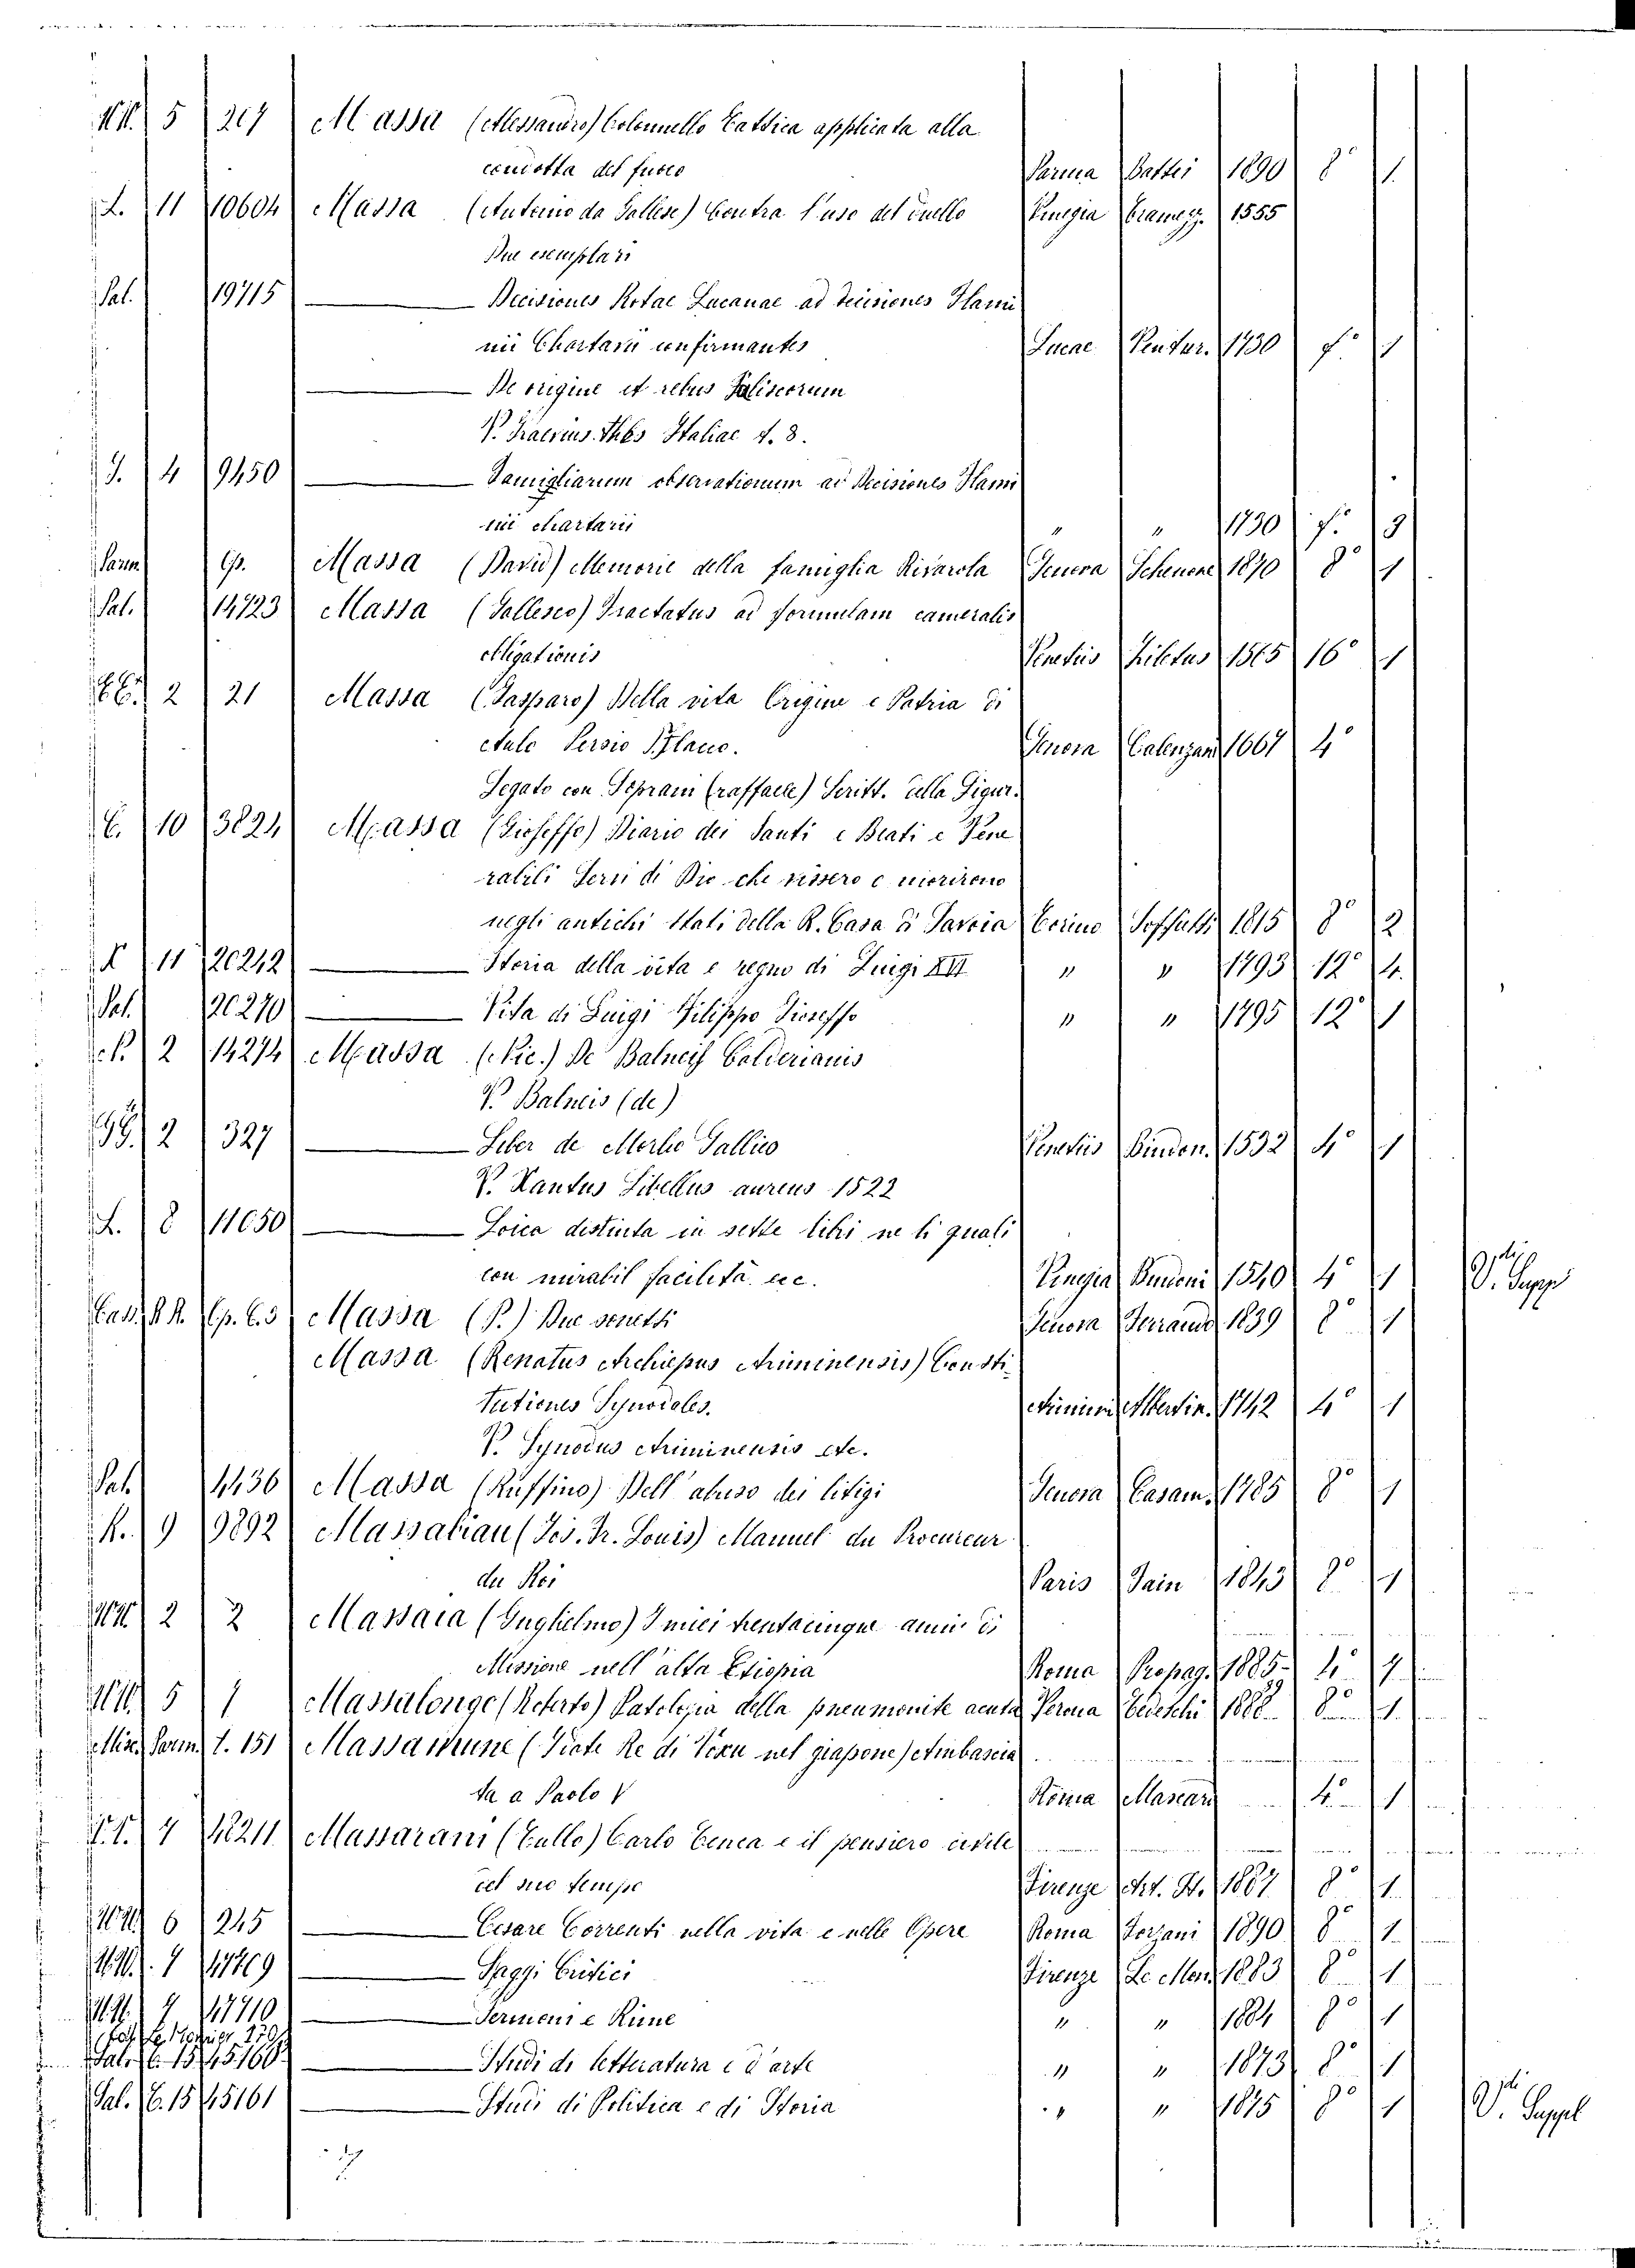 5 267 Massa (Alessandro) Colonnello Tattica applicata alla
condotta del fuoco Parma Battei 1890 8° 1
L. 11 10604 Massa (Antonio da Gallese) Contra l'uso del duello Venegia 1555
Due esemplari
Sal. 19715 Decisiones Rotae Lucanae ad decisiones Flami
nii Chartarii confirmantes Lucae Ventur. 1730 f. 1
De origine et rebus Faliscorum
V. Thes Italiae t. 8.
J. 4 9450 observationum ad Decisiones Flami
nii chartarii " " 1730 f. 3
Gp. Massa (David) Memorie della famiglia Rivarola Genova Schenone 1870 8° 1
Sal. 14723 Massa (Gallesco) Tractatus ad formulam cameralis
obligationis Venetiis Ziletus 1565 16° 1
2 21 Massa (Gasparo) Della vita Origine e Patria di
Aulo Persio Flacco. Genova Calenzani 1667 4°
Legato con Soprani (raffaele) Scritt. della Ligur.
C. 10 3824 Massa (Gioseffo) Diario dei Santi e Beati e Vene
rabili Servi di Dio che vissero e morirono
negli antichi Stati della R. Casa di Savoia Torino Soffietti 1815 8° 2
11 20242 Storia della vita e regno di Luigi XVI " " 1793 12° 4.
Sal. 20270 Vita di Luigi Filippo Gioseffo " " 1795 12° 1
2 14274 Massa (Nic.) De Balneis Calderianis
V. Balneis (de)
2 327 Liber de Morbo Gallico Venetiis Bindon. 1532 4° 1
V. Libellus aureus 1522
L. 8 11050 Loica distinta in sette libri ne li quali
con mirabil facilità ecc. Vinegia Bindoni 1540 4° 1 V. Supp
Massa (P.) Due sonetti Genova Ferrando 1839 8° 1
Massa (Renatus Archiepus Ariminensis) Consti
tutiones Synodales. Arimini Albertin. 1742 4° 1
V. Synodus Ariminensis etc.
Sal. 4436 Massa (Ruffino) Dell'abuso dei litigi Genova Casam. 1785 8° 1
K. 9 9892 Massabiau (Jos. Fr. Louis) Manuel du Procureur
du Roi Paris Jain 1843 8° 1
2 2 Massaia (Guglielmo) I miei trentacinque anni di
Missione nell'alta Etiopia Roma Propag. 1885 4°
5 1 Massalongo (Roberto) Patologia della pneumonite acuta Verona Tedeschi 1888 8° 1
Misc. Sarm. t. 151 Massamune (Fiate Re di Voxu nel giapone) Ambascia
ta a Paolo V Roma Mascardi 4° 1
7 42211 Massarani (Tullo) Carlo Tenca e il pensiero civile
del suo tempo Firenze Art. St. 1887 8° 1
6 245 Cesare Correnti nella vita e nelle Opere Roma Forzani 1890 8° 1
Saggi Critici Firenze Le Mon. 1883 8° 1
Sermoni e Rime " " 1884 8° 1
Studi di letteratura e d'arte " " 1873 8° 1
Sal. C. 15 45161 Studi di Politica e di Storia " " 1875 8° 1 V. Suppl